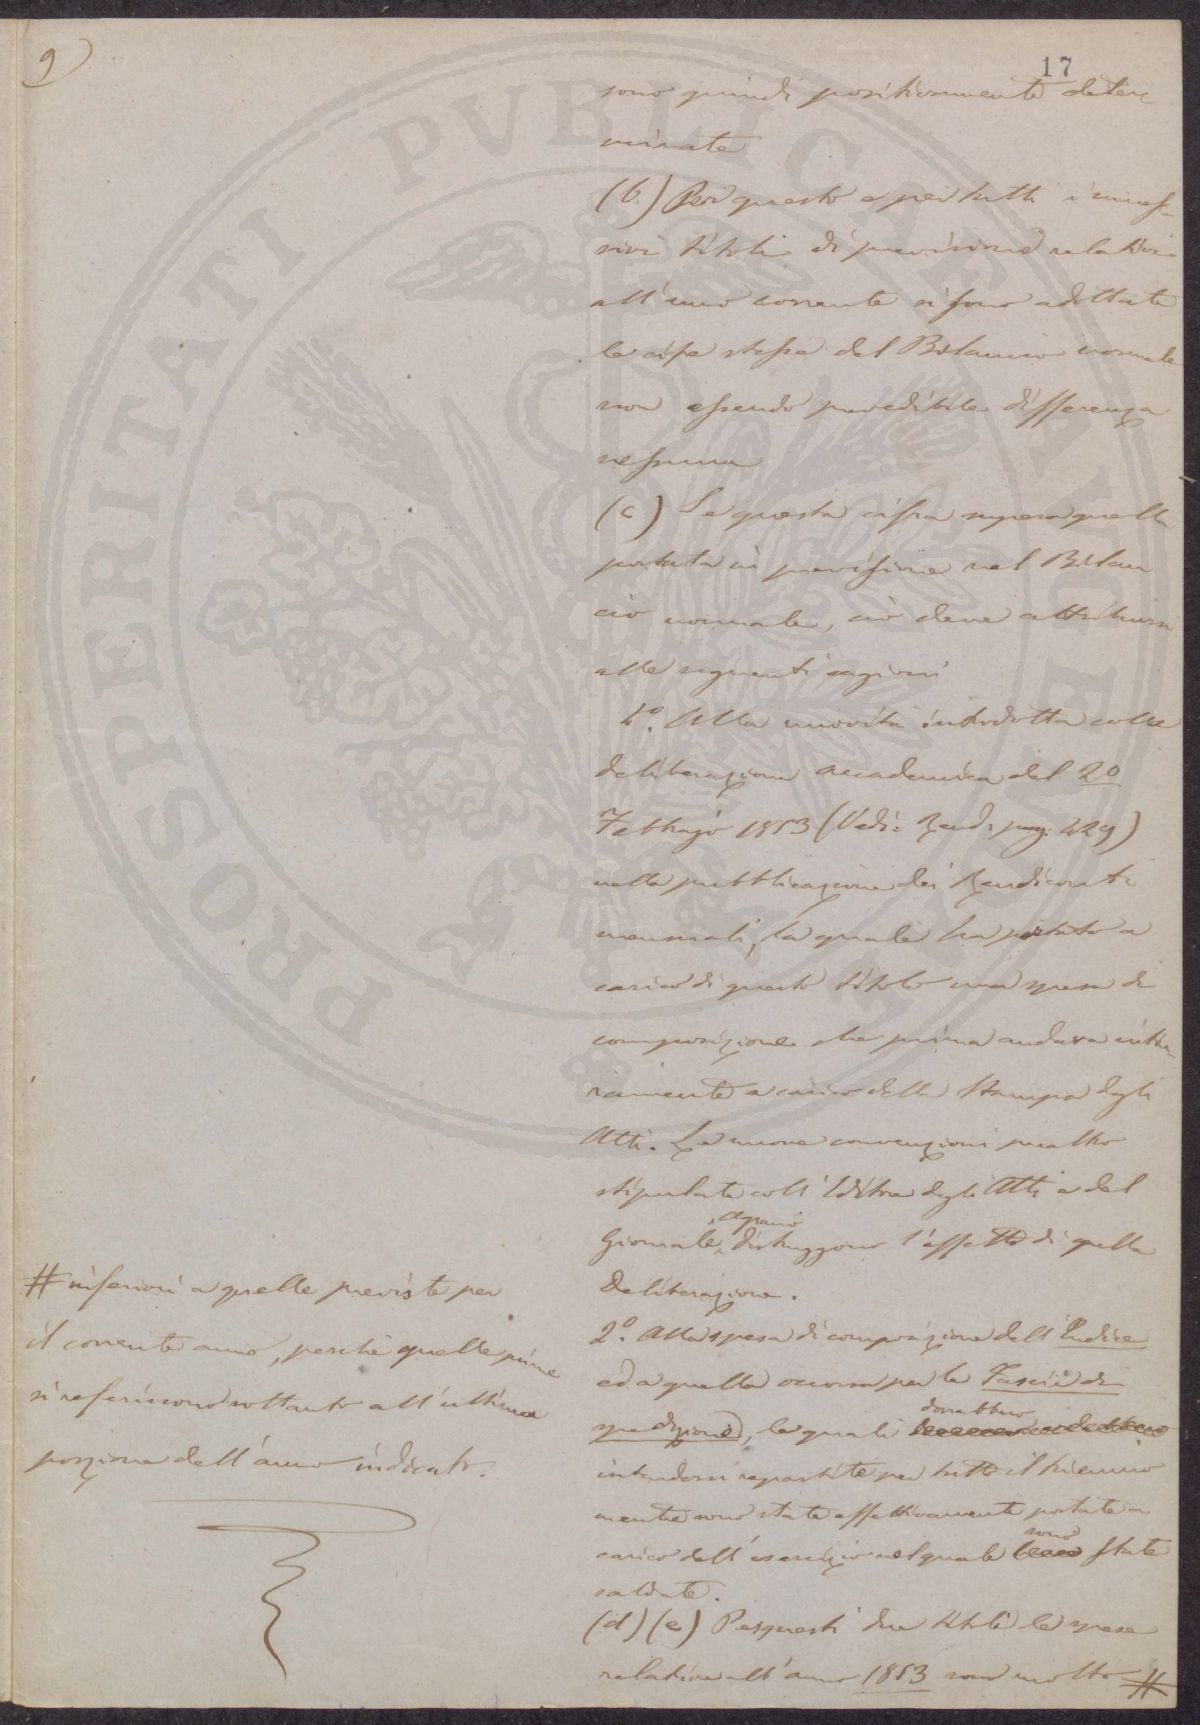 9)
17
sono quindi positivamente deter-
minate
(b.) Per questo e per tutti i succes-
sivi titoli di previsione relativi
all'anno corrente si sono adottate
le cifre stesse del Bilancio normale
non essendo prevedibile differenza
nessuna
(c) Se questa cifra supera quella
portata in previsione nel Bilan
cio normale, ciò deve attribuirsi
alle seguenti cagioni
1.º Alla novità introdotta colla
deliberazione accademica del 20
Febbrajo 1853 (Vedi: Rend: pag: 229)
nella pubblicazione dei Rendiconti
mensuali, la quale ha portato a
carico di questo titolo una spesa di
composizione che prima andava inte-
ramente a carico della Stampa degli
Atti. Le nuove convenzioni peraltro
stipulate coll'Editore degli Atti e del
Giornale, distruggono l'effetto di quella
Deliberazione.
2.º Alla spesa di composizione dell'Indice
ed a quella occorsa per le Fascie di
spedizione, le quali dovrebbero
intendersi repartite per tutto il triennio
mentre sono state effettivamente portate a
carico dell'esercizio nel quale sono state
saldate.
(d) (e) Per questi due titoli le spese
relative all'anno 1853 sono molto #
# inferiori a quelle previste per
il corrente anno, perchè quelle prime
si riferiscono soltanto all'ultima
porzione dell'anno indicato.
PROSPERITATI PVBLICAE AVGENDAE